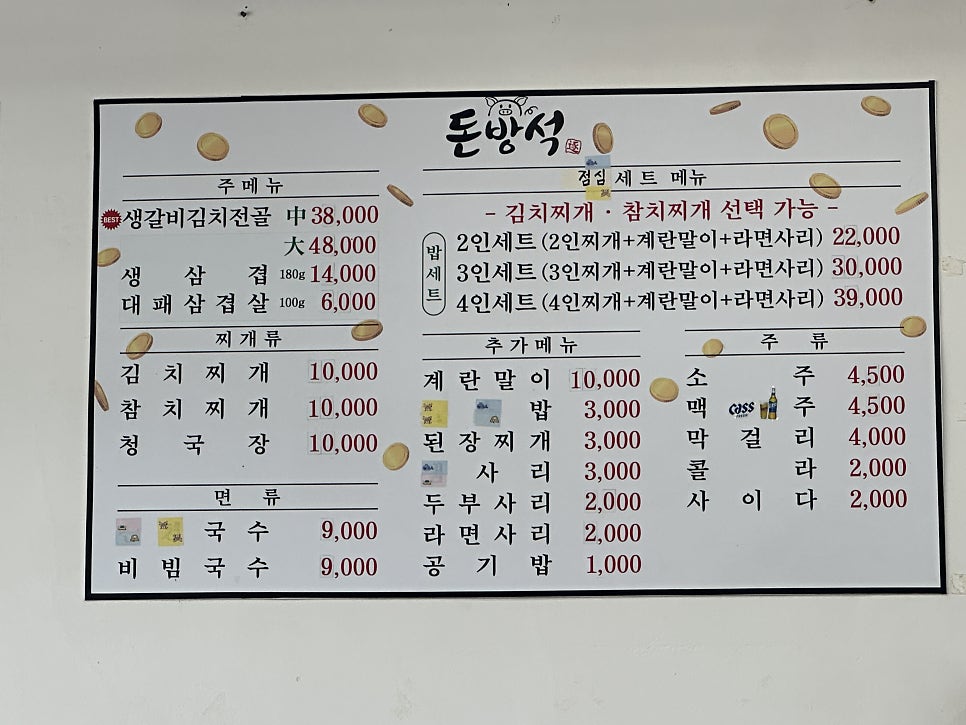 돈방석
주메뉴
BEST 생갈비김치전골 中 38,000
大 48,000
생삼겹 180g 14,000
대패삼겹살 100g 6,000
찌개류
김치찌개 10,000
참치찌개 10,000
청국장 10,000
면류
국수 9,000
비빔국수 9,000
점심 세트 메뉴
- 김치찌개 · 참치찌개 선택 가능 -
밥세트
2인세트 (2인찌개+계란말이+라면사리) 22,000
3인세트 (3인찌개+계란말이+라면사리) 30,000
4인세트 (4인찌개+계란말이+라면사리) 39,000
추가메뉴
계란말이 10,000
밥 3,000
된장찌개 3,000
사리 3,000
두부사리 2,000
라면사리 2,000
공기밥 1,000
주류
소주 4,500
맥 Cass 주 4,500
막걸리 4,000
콜라 2,000
사이다 2,000